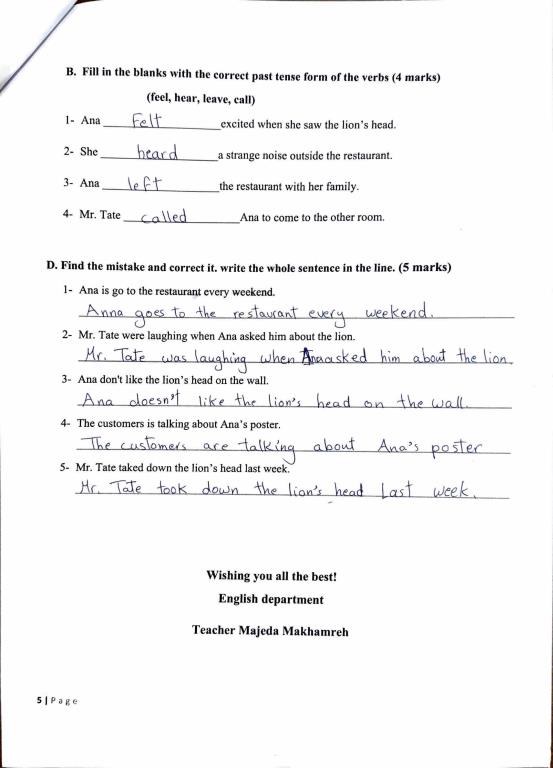 B. Fill in the blanks with the correct past tense form of the verbs (4 marks)
(feel, hear, leave, call)
1- Ana Felt excited when she saw the lion's head.
2- She heard a strange noise outside the restaurant.
3- Ana left the restaurant with her family.
4- Mr. Tate called Ana to come to the other room.
D. Find the mistake and correct it. write the whole sentence in the line. (5 marks)
1- Ana is go to the restaurant every weekend.
Anna goes to the restaurant every weekend.
2- Mr. Tate were laughing when Ana asked him about the lion.
Mr. Tate was laughing when Ana asked him about the lion.
3- Ana don't like the lion's head on the wall.
Ana doesn't like the lion's head on the wall.
4- The customers is talking about Ana's poster.
The customers are talking about Ana's poster
5- Mr. Tate taked down the lion's head last week.
Mr. Tate took down the lion's head Last week.
Wishing you all the best!
English department
Teacher Majeda Makhamreh
5 | Page